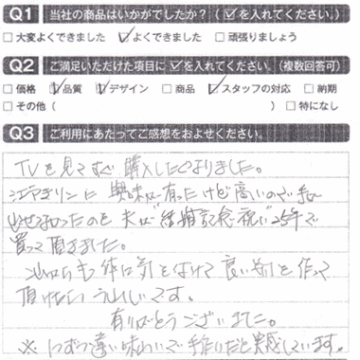 Q1 当社の商品はいかがでしたか？（☑を入れてください。）
□大変よくできました ☑よくできました □頑張りましょう
Q2 ご満足いただけた項目に☑を入れてください。（複数回答可）
□価格 ☑品質 ☑デザイン □商品 ☑スタッフの対応 □納期
□その他（ ）□特になし
Q3 ご利用にあたってご感想をおよせください。
TVを見てすぐ購入したくなりました。
に興味が有ったけど高いので手に
出せなかったのを夫が"結婚記念祝い"25年で
買って頂きました。
これからも体に気をつけて良い物を作って
頂けたらうれしいです。
有りがとうございました。
※1つずつ違い味わいで手作りだと実感しています。